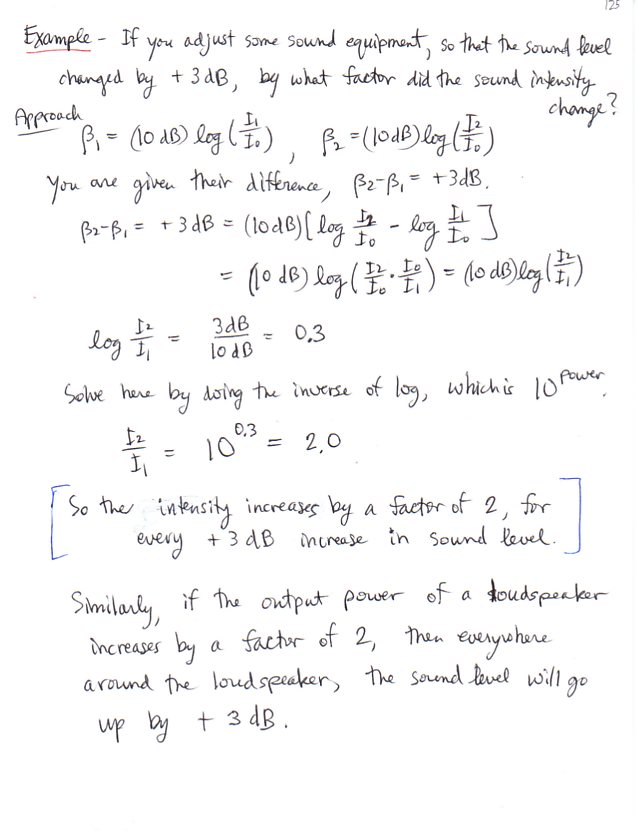 125
Example - If you adjust some sound equipment, so that the sound level
changed by + 3 dB, by what factor did the sound intensity
change?
Approach
β₁ = (10 dB) log (I₁/I₀) , β₂ = (10 dB) log (I₂/I₀)
You are given their difference, β₂-β₁ = +3dB.
β₂-β₁ = + 3 dB = (10 dB) [ log I₂/I₀ - log I₁/I₀ ]
= (10 dB) log ( I₂/I₀ · I₀/I₁ ) = (10 dB) log (I₂/I₁)
log I₂/I₁ = 3 dB/10 dB = 0.3
Solve here by doing the inverse of log, which is 10^power.
I₂/I₁ = 10^0.3 = 2.0
[ So the intensity increases by a factor of 2, for
every + 3 dB increase in sound level. ]
Similarly, if the output power of a loudspeaker
increases by a factor of 2, then everywhere
around the loudspeaker, the sound level will go
up by + 3 dB.